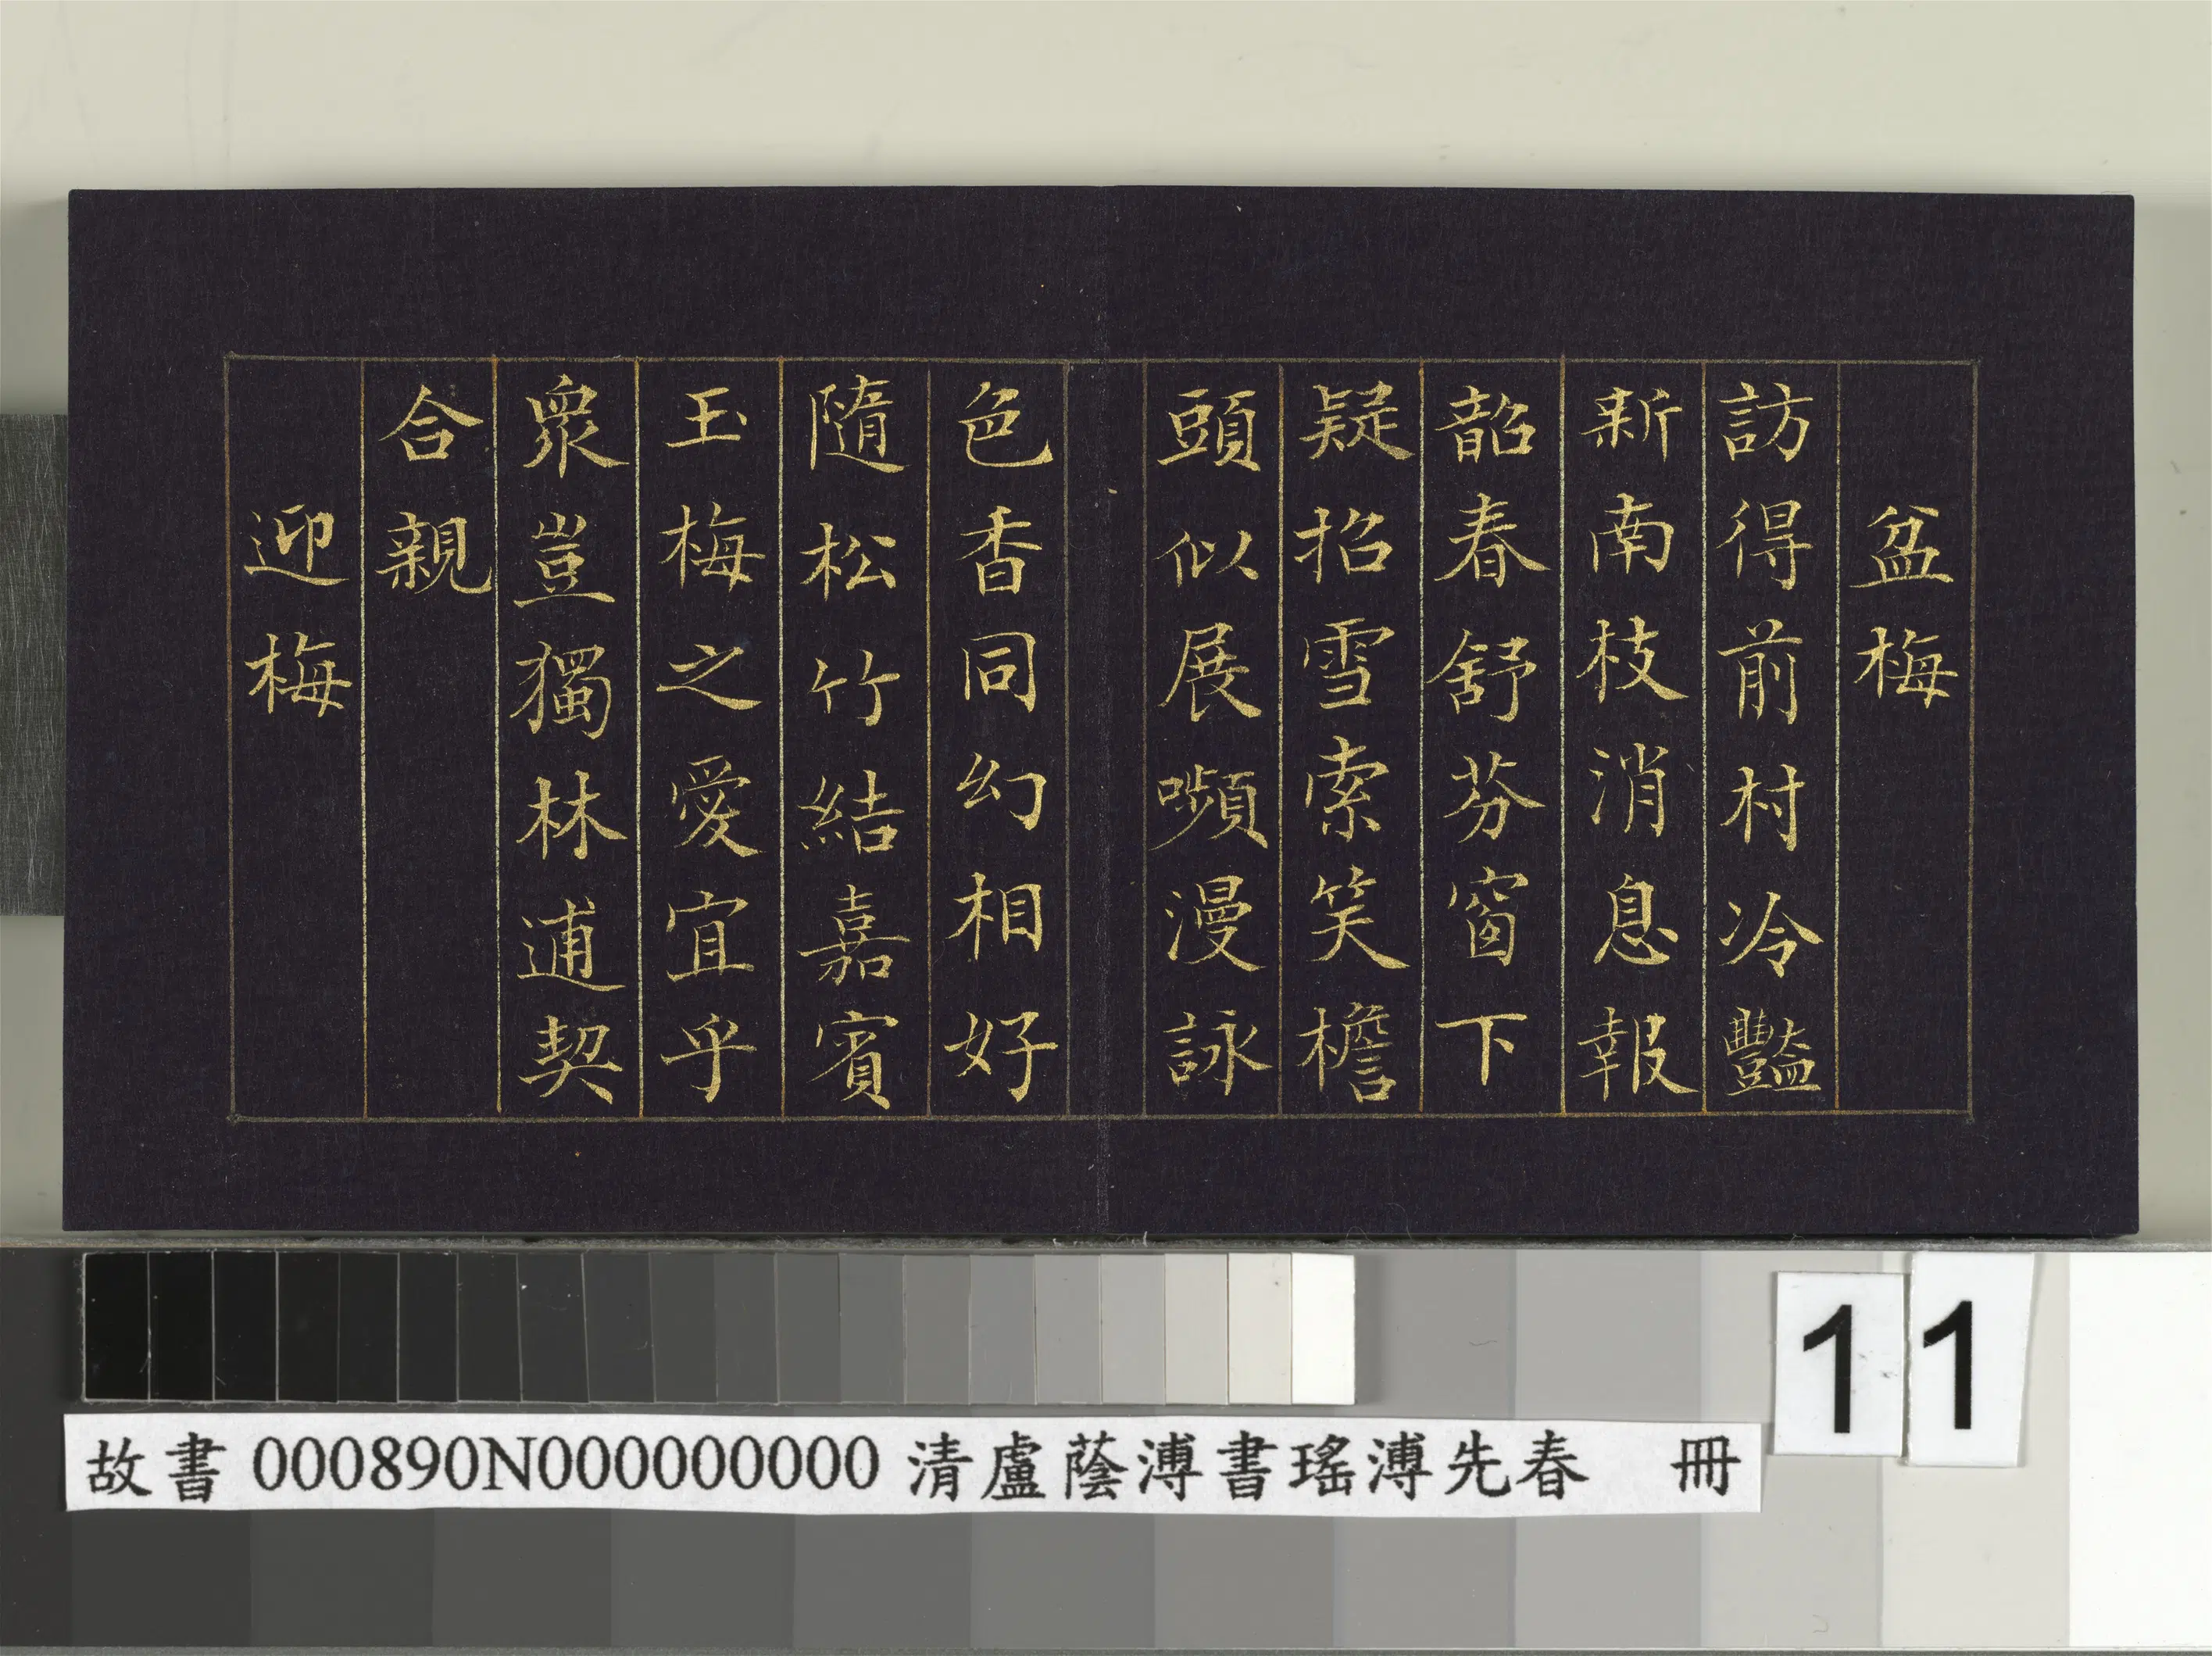 盆梅
訪得前村冷豔
新南枝消息報
韶春舒芬窗下
疑招雪索笑檐
頭似展嚬漫詠
色香同幻相好
隨松竹結嘉賓
玉梅之愛宜乎
衆豈獨林逋契
合親
迎梅
11
故書 000890N000000000 清盧蔭溥書瑤溥先春 冊